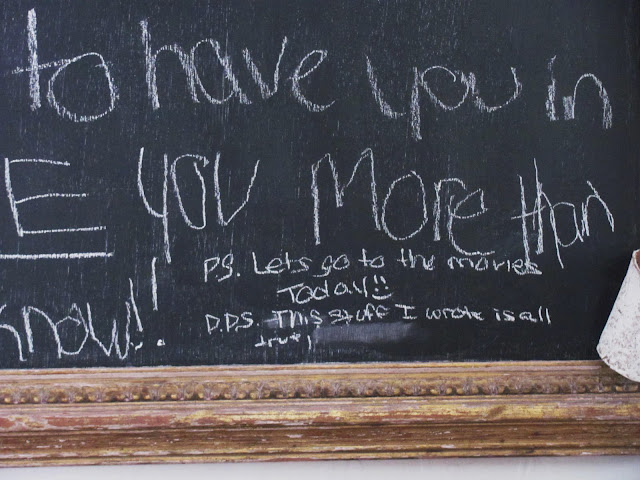 to have you in
E you More than
know!!
P.S. Lets go to the movies
Today!!
D.D.S. This stuff I wrote is all
true!